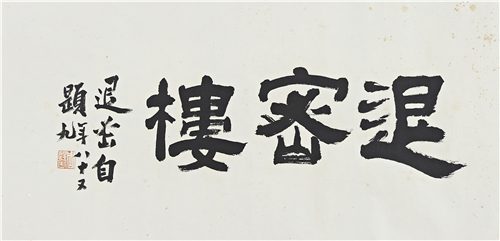 退密樓
退密自
題年八十又
九